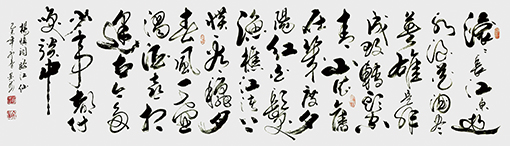 滚滚長江東逝
水浪花淘尽
英雄是非
成敗轉頭空
青山依舊
在幾度夕
陽红白髮
渔樵江渚上
惯看秋月
春風一壺
濁酒喜相
逢古今多
少事都付
笑談中
楊慎詞临江仙